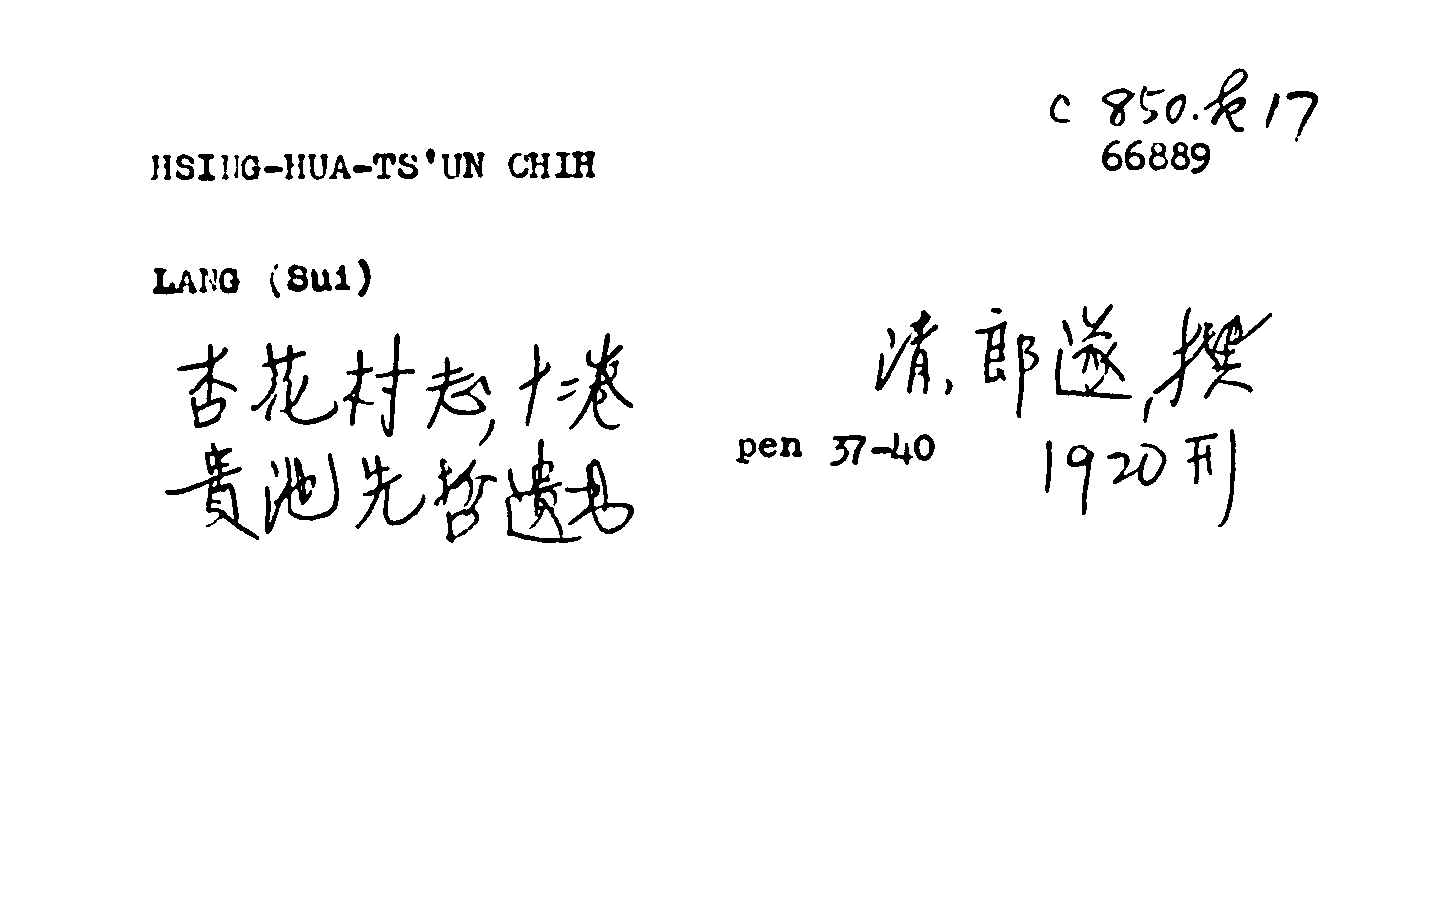 C 850.
17
66889
HSING-HUA-TS'UN CHIH
LANG (Sui)
杏花村志, 十二卷
清, 郎遂, 撰
貴池先哲遺书
pen 37-40
1920刊